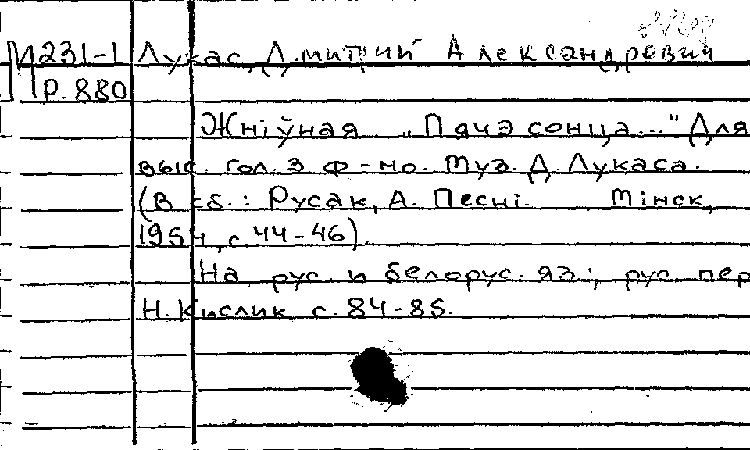 М231-1 Лукас, Дмитрий Александрович
Р.880
Жніўная „Пячэ сонца..." Для
выс. гол. з ф-но. Муз. Д. Лукаса.
(В сб.: Русак, А. Песні. Мінск,
1954, с. 44-46).
На рус. и белорус. яз.; рус. пер
Н. Кислик с. 84-85.